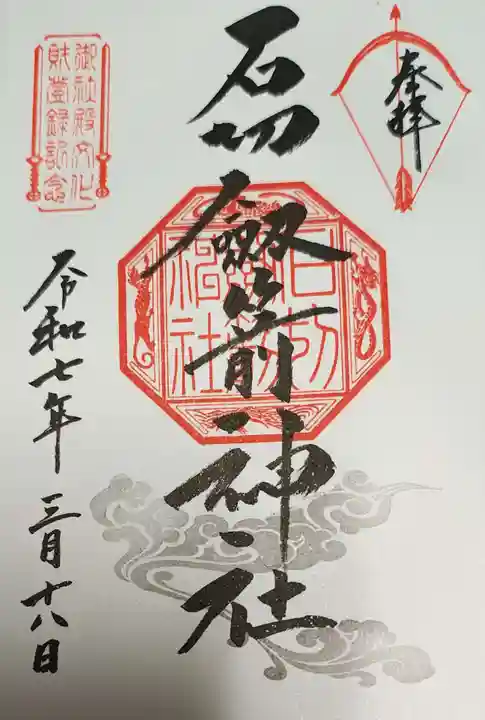 奉拝
石切劔箭神社
石切劔箭神社
御社殿文化
財登録記念
令和七年 三月十八日